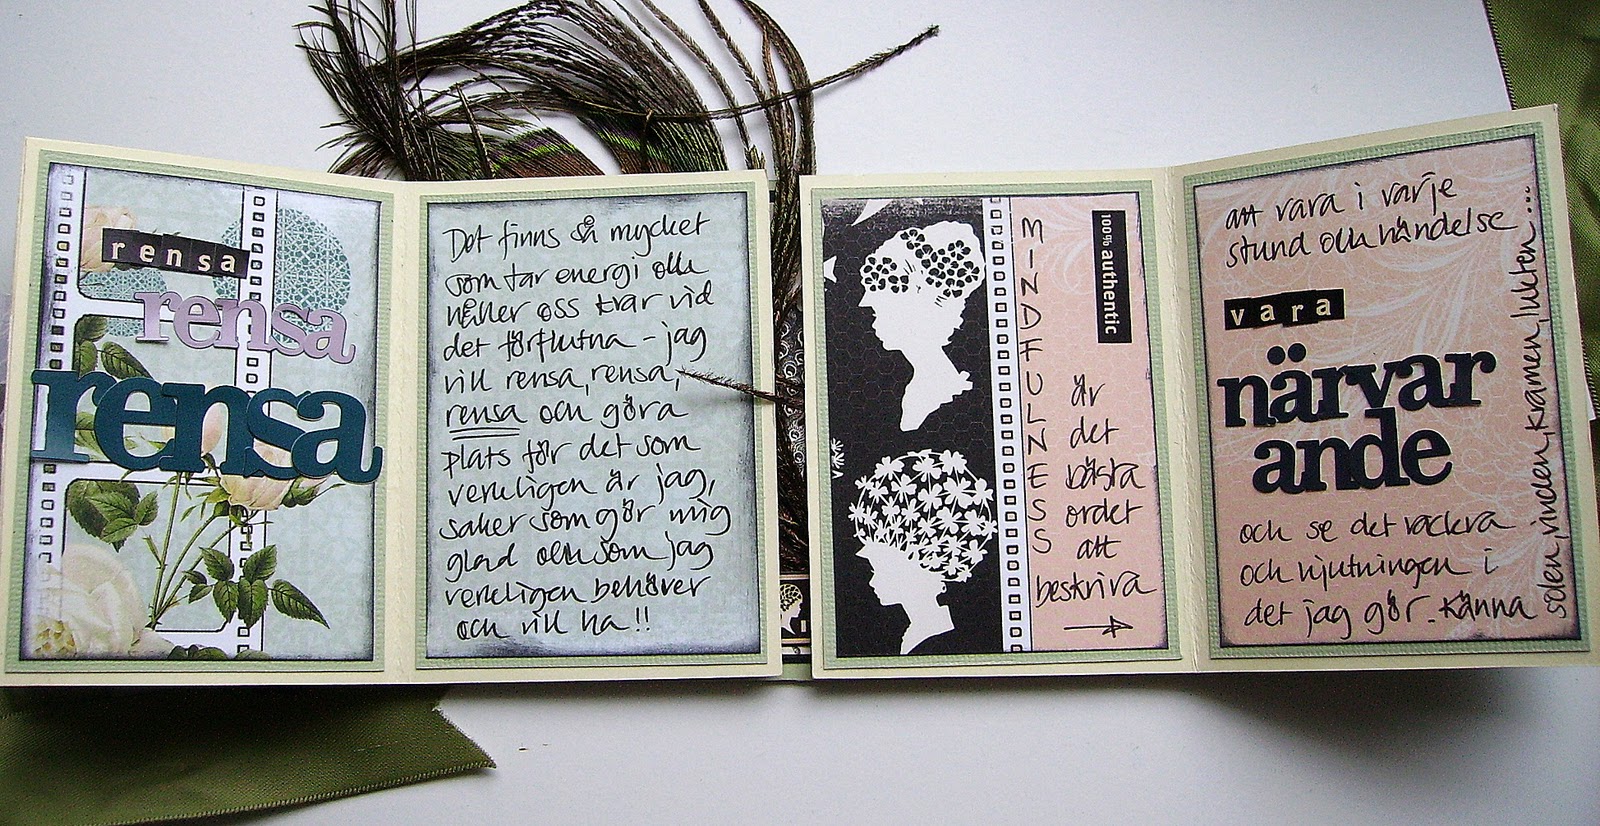 rensa
rensa
rensa
Det finns så mycket
som tar energi och
håller oss kvar vid
det förflutna - jag
vill rensa, rensa,
rensa och göra
plats för det som
verkligen är jag,
saker som gör mig
glad och som jag
verkligen behöver
och vill ha!!
MINDFULNESS
100% authentic
är
det
bästa
ordet
att
beskriva
att vara i varje
stund och händelse
vara
närvar
ande
och se det vackra
och njutningen i
det jag gör. Känna
solen, vinden, kramen, lukten...